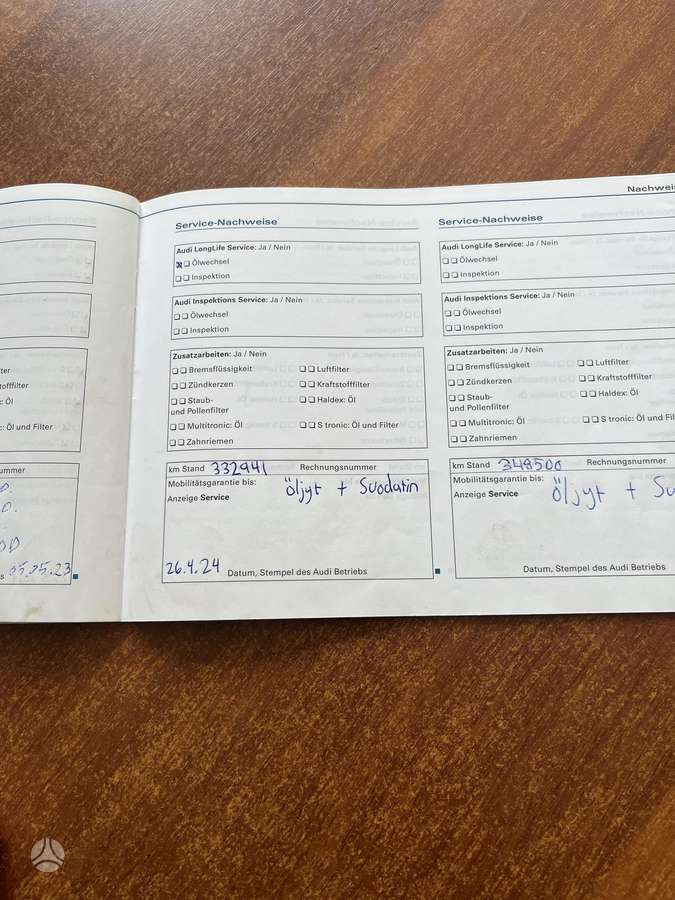 Nachweis
ter
tofffilter
c: Öl
: Öl und Filter
ummer
D.
D.
OD
s 05.05.23
Service-Nachweise
Audi LongLife Service: Ja / Nein
Ölwechsel
Inspektion
Audi Inspektions Service: Ja / Nein
Ölwechsel
Inspektion
Zusatzarbeiten: Ja / Nein
Bremsflüssigkeit Luftfilter
Zündkerzen Kraftstofffilter
Staub- Haldex: Öl
und Pollenfilter
Multitronic: Öl S tronic: Öl und Filter
Zahnriemen
km Stand 332941 Rechnungsnummer
Mobilitätsgarantie bis: öljyt + Suodatin
Anzeige Service
26.4.24 Datum, Stempel des Audi Betriebs
Service-Nachweise
Audi LongLife Service: Ja / Nein
Ölwechsel
Inspektion
Audi Inspektions Service: Ja / Nein
Ölwechsel
Inspektion
Zusatzarbeiten: Ja / Nein
Bremsflüssigkeit Luftfilter
Zündkerzen Kraftstofffilter
Staub- Haldex: Öl
und Pollenfilter
Multitronic: Öl S tronic: Öl und Filte
Zahnriemen
km Stand 348500 Rechnungsnummer
Mobilitätsgarantie bis: öljyt + Su
Anzeige Service
Datum, Stempel des Audi Betriebs